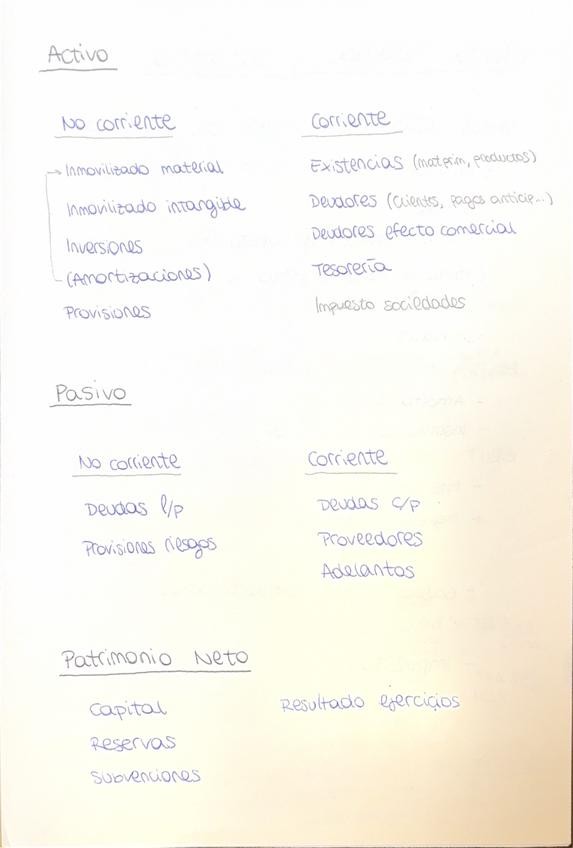 Activo
No corriente
Inmovilizado material
Inmovilizado intangible
Inversiones
(Amortizaciones)
Provisiones
Corriente
Existencias (mat prim, productos)
Deudores (clientes, pagos anticip...)
Deudores efecto comercial
Tesorería
Impuesto sociedades
Pasivo
No corriente
Deudas l/p
Provisiones riesgos
Corriente
Deudas c/p
Proveedores
Adelantos
Patrimonio Neto
Capital
Reservas
Subvenciones
Resultado ejercicios